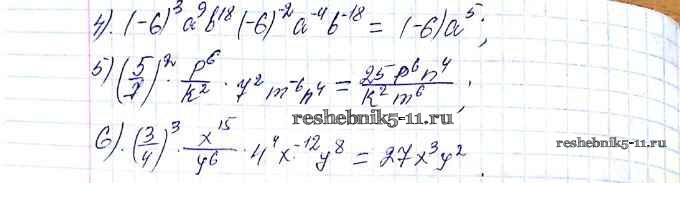 4). (-6)³a⁹b¹⁸(-6)⁻²a⁻⁴b⁻¹⁸ = (-6)a⁵;
5) (5/7)² · p⁶/k² · 7²m⁻⁶n⁴ = 25p⁶n⁴/k²m⁶;
reshebnik5-11.ru
6). (3/4)³ · x¹⁵/y⁶ · 4⁴x⁻¹²y⁸ = 27x³y².
reshebnik5-11.ru